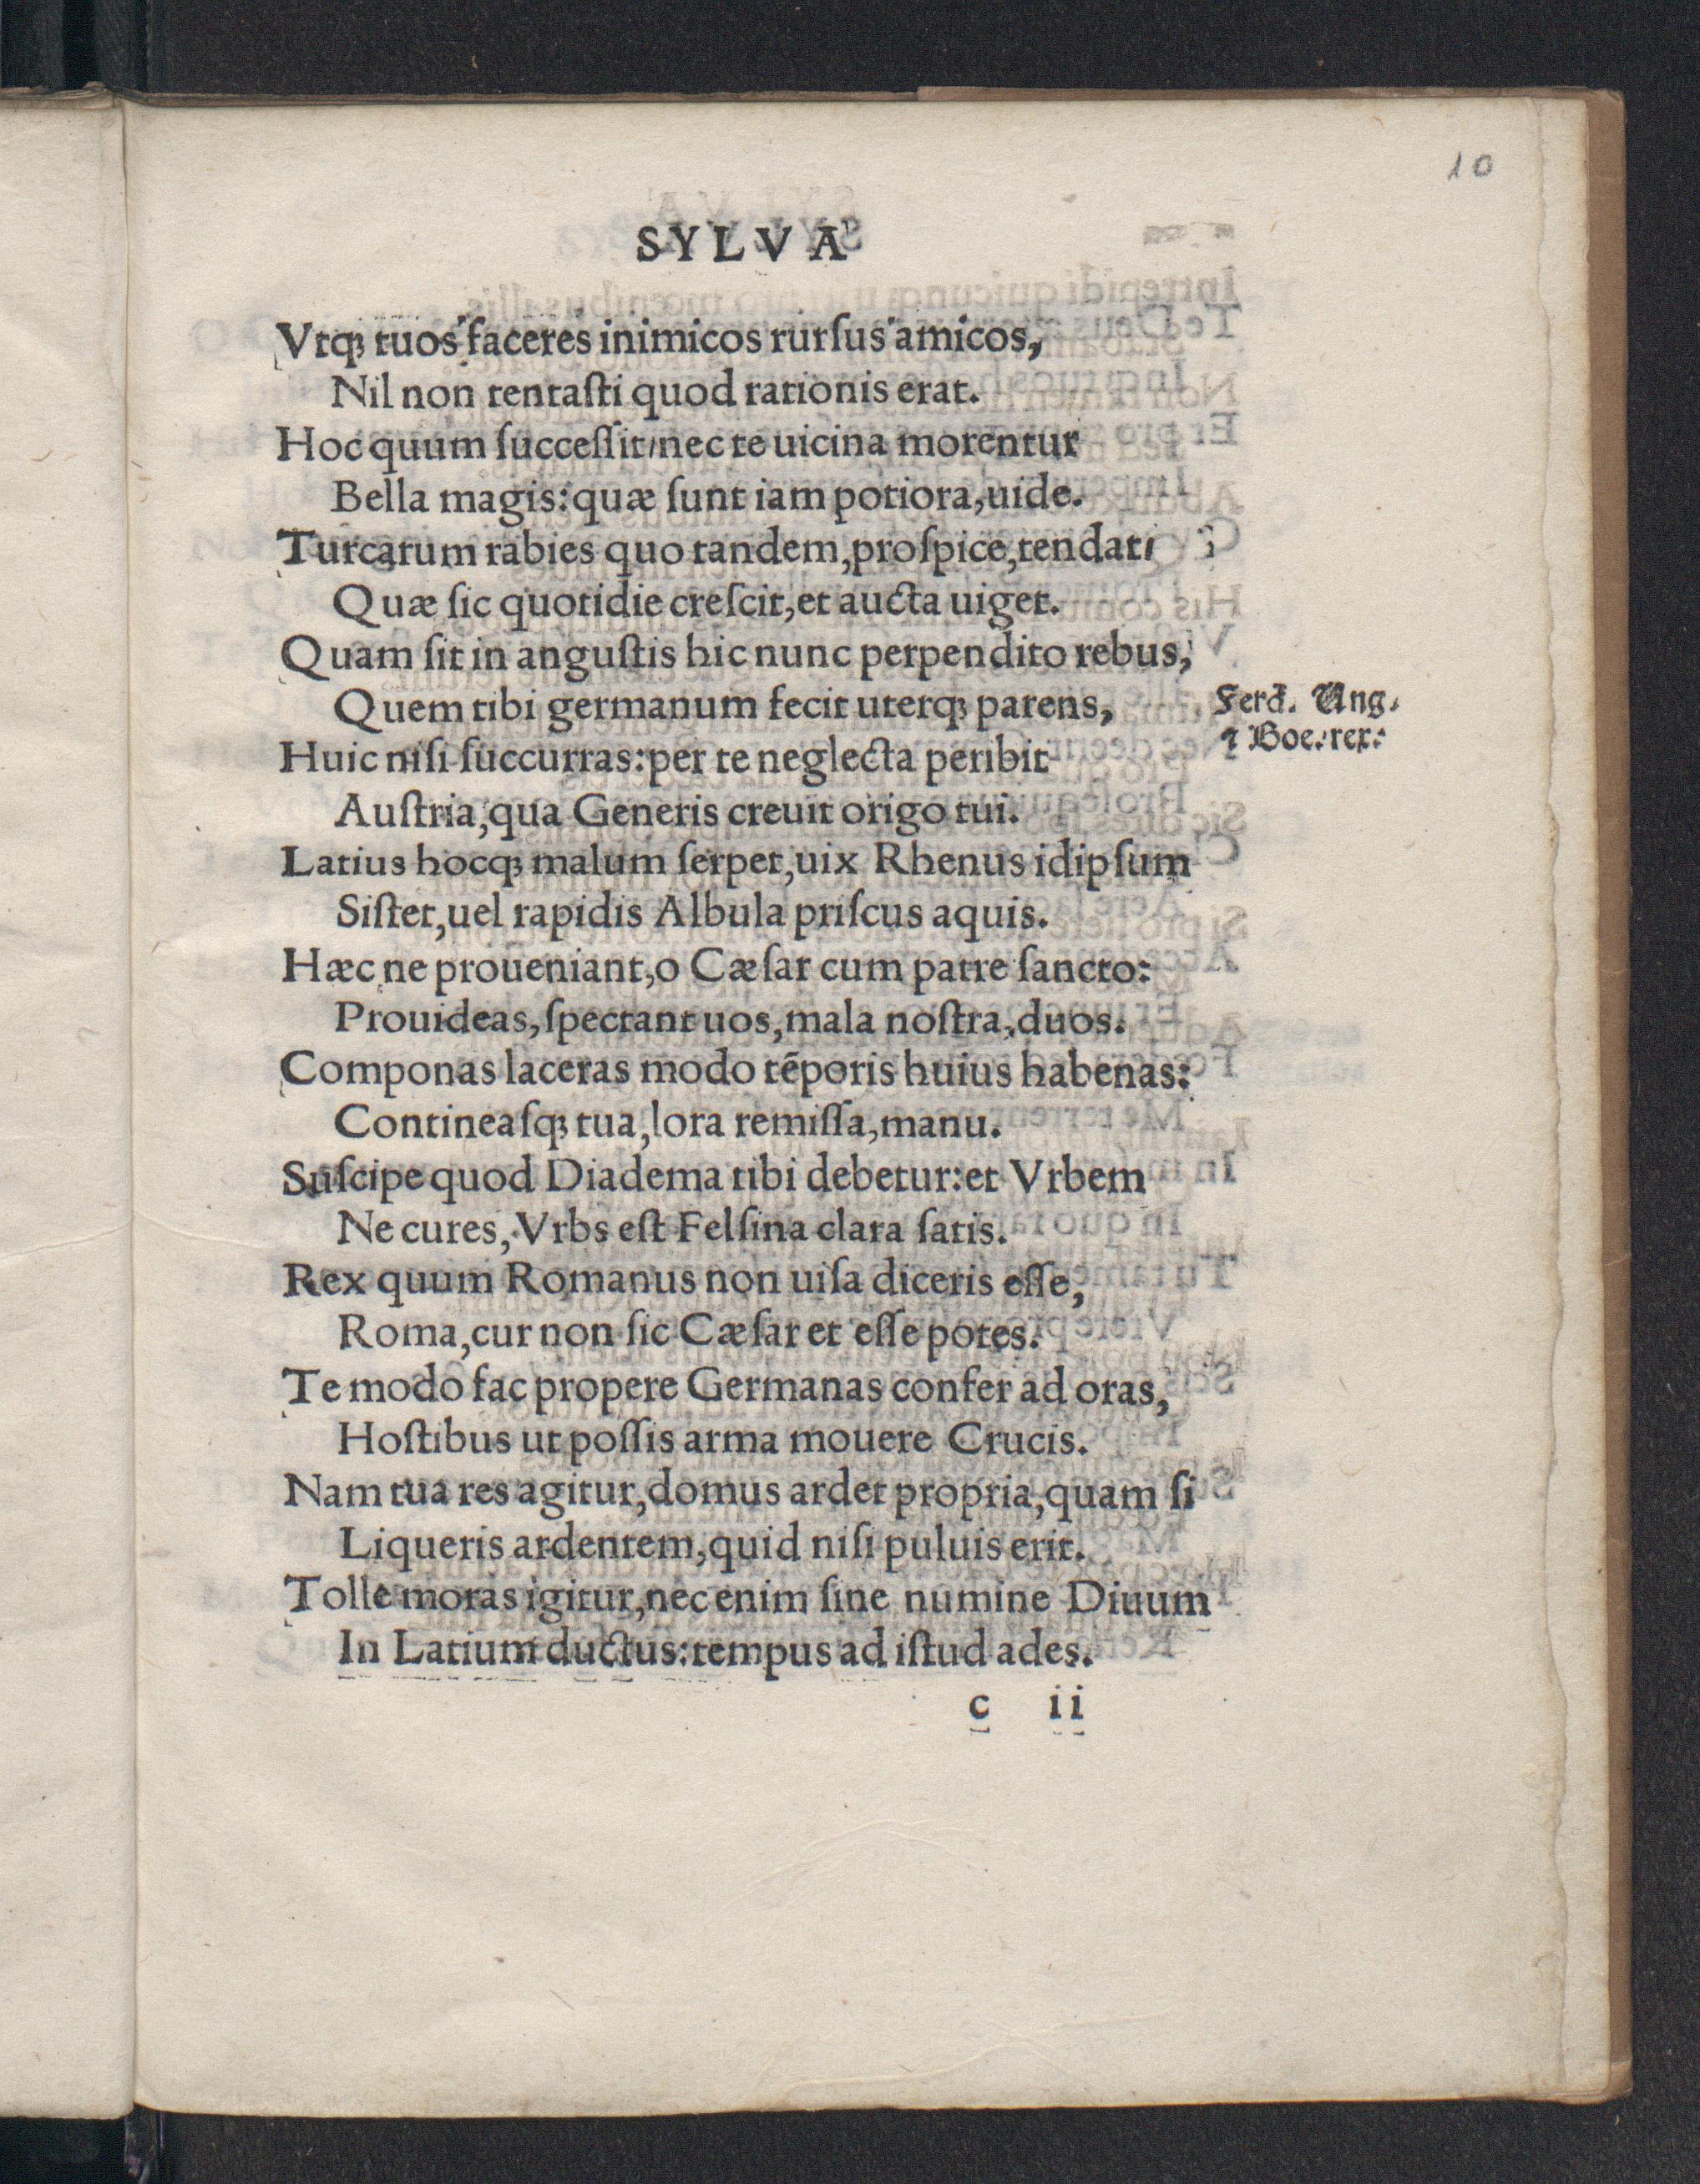 10
SYLVA
Vtqꝫ tuos faceres inimicos rurſus amicos,
Nil non tentaſti quod rationis erat.
Hoc quum ſucceſſit/nec te uicina morentur
Bella magis: quæ ſunt iam potiora, uide.
Turcarum rabies quo tandem, proſpice, tendat/
Quæ ſic quotidie creſcit, et aucta uiget.
Quam ſit in anguſtis hic nunc perpendito rebus,
Quem tibi germanum fecit uterqꝫ parens,
Ferd. Ung.
⁊ Boe. rex.
Huic niſi ſuccurras: per te neglecta peribit
Auſtria, qua Generis creuit origo tui.
Latius hocqꝫ malum ſerpet, uix Rhenus idipſum
Siſtet, uel rapidis Albula priſcus aquis.
Hæc ne proueniant, o Cæſar cum patre ſancto:
Prouideas, ſpectant uos, mala noſtra, duos.
Componas laceras modo tēporis huius habenas:
Contineaſqꝫ tua, lora remiſſa, manu.
Suſcipe quod Diadema tibi debetur: et Vrbem
Ne cures, Vrbs eſt Felſina clara ſatis.
Rex quum Romanus non uiſa diceris eſſe,
Roma, cur non ſic Cæſar et eſſe potes.
Te modo fac propere Germanas confer ad oras,
Hoſtibus ut poſſis arma mouere Crucis.
Nam tua res agitur, domus ardet propria, quam ſi
Liqueris ardentem, quid niſi puluis erit.
Tolle moras igitur, nec enim ſine numine Diuum
In Latium ductus: tempus ad iſtud ades.
c ii